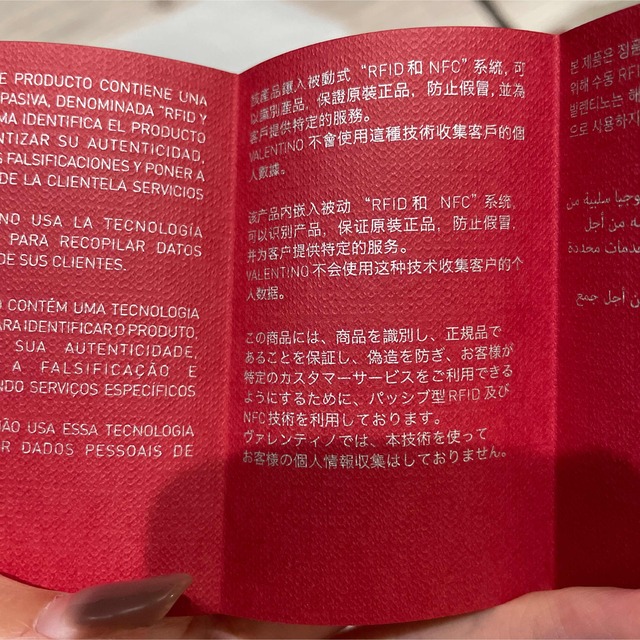 E PRODUCTO CONTIENE UNA
PASIVA, DENOMINADA "RFID Y
MA IDENTIFICA EL PRODUCTO
NTIZAR SU AUTENTICIDAD,
S FALSIFICACIONES Y PONER A
DE LA CLIENTELA SERVICIOS
NO USA LA TECNOLOGÍA
PARA RECOPILAR DATOS
DE SUS CLIENTES.
O CONTÉM UMA TECNOLOGIA
ARA IDENTIFICAR O PRODUTO,
SUA AUTENTICIDADE,
A FALSIFICAÇÃO E
NDO SERVIÇOS ESPECÍFICOS
ÃO USA ESSA TECNOLOGIA
R DADOS PESSOAIS DE
該產品鑲入被動式 “RFID 和 NFC” 系統, 可
以識別產品, 保證原裝正品, 防止假冒, 並為
客戶提供特定的服務。
VALENTINO 不會使用這種技術收集客戶的個
人數據。
该产品内嵌入被动 “RFID 和 NFC” 系统,
可以识别产品, 保证原装正品, 防止假冒,
并为客户提供特定的服务。
VALENTINO 不会使用这种技术收集客户的个
人数据。
この商品には、商品を識別し、正規品で
あることを保証し、偽造を防ぎ、お客様が
特定のカスタマーサービスをご利用できる
ようにするために、パッシブ型 RFID 及び
NFC 技術を利用しております。
ヴァレンティノでは、本技術を使って
お客様の個人情報収集はしておりません。
본 제품은 정품
위해 수동 RFID
발렌티노는 해
으로 사용하지
وجيا سلبية من
من أجل
خدمات محددة
من أجل جمع